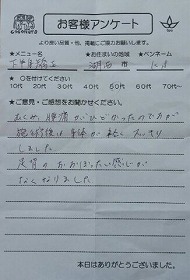 お客様アンケート
より良い品質・他、掲載にご協力お願いします。
★メニュー名 ★お住まいの地域 ★ペンネーム
下半身矯正 湖西市
★ ○を付けてください
10代 20代 30代 40代 50代 60代 70代〜
★ご意見・ご感想をお聞かせください。
むくみ、腰痛がひどかったのですが
施術後は身体が軽くスッキリ
しました
足首のおおぼったい感じが
なくなりました
本日はありがとうございました。